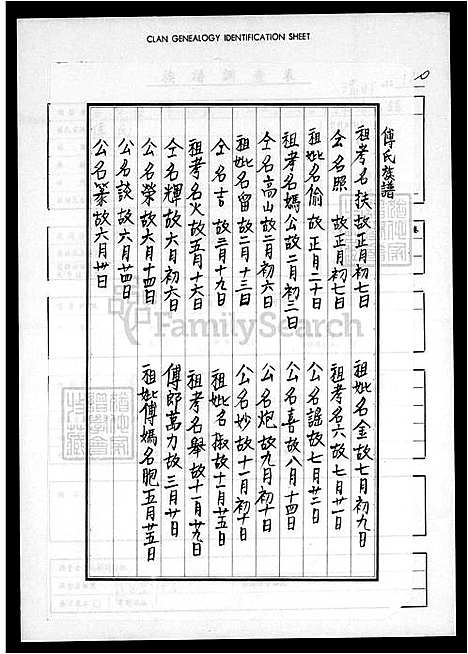 CLAN GENEALOGY IDENTIFICATION SHEET
傅氏族譜
祖考名扶故正月初七日
仝名照故正月初七日
祖妣名偷故正月二十日
祖考名媽公故二月初二日
仝名高山故二月初六日
祖妣名留故二月十三日
仝名吉故三月十九日
祖考名火故五月十六日
仝名輝故六月初六日
公名榮故六月十四日
公名談故六月廿四日
公名篆故六月廿日
祖妣名金故七月初九日
祖考名六故七月廿一日
公名謠故七月廿二日
公名喜故八月十四日
公名炮故九月初十日
公名妙故十一月初十日
祖妣名椒故十一月廿五日
祖考名舉故十一月廿九日
傅郎萬力故三月廿日
祖妣傅媽名胞五月廿五日
FamilySearch